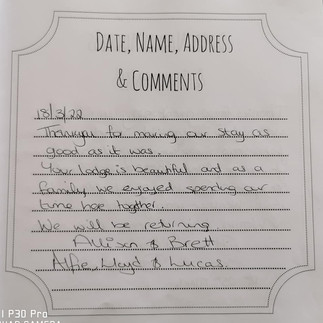 DATE, NAME, ADDRESS
& COMMENTS
18/3/22
Thankyou for making our stay as
good as it was.
Your lodge is beautiful and as a
family we enjoyed spending our
time here together.
We will be returning
Allison & Brett
Alfie, Lloyd & Lucas.
P30 Pro